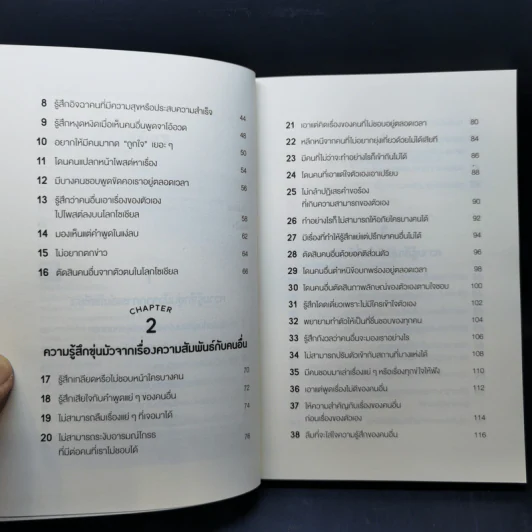 8 รู้สึกอิจฉาคนที่มีความสุขหรือประสบความสำเร็จ 44
9 รู้สึกหงุดหงิดเมื่อเห็นคนอื่นพูดจาโอ้อวด 46
10 อยากให้มีคนมากด "ถูกใจ" เยอะ ๆ 50
11 โดนคนแปลกหน้าโพสต์หาเรื่อง 54
12 มีบางคนชอบพูดขัดคอเราอยู่ตลอดเวลา 56
13 รู้สึกว่าคนอื่นเอาเรื่องของตัวเอง
ไปโพสต์ลงบนโลกโซเชียล 58
14 มองเห็นแต่คำพูดในแง่ลบ 62
15 ไม่อยากตกข่าว 64
16 ตัดสินคนอื่นจากตัวตนในโลกโซเชียล 66
CHAPTER
2
ความรู้สึกขุ่นมัวจากเรื่องความสัมพันธ์กับคนอื่น
17 รู้สึกเกลียดหรือไม่ชอบหน้าใครบางคน 70
18 รู้สึกเสียใจกับคำพูดแย่ ๆ ของคนอื่น 72
19 ไม่สามารถลืมเรื่องแย่ ๆ ที่เจอมาได้ 74
20 ไม่สามารถระงับอารมณ์โกรธ
ที่มีต่อคนที่เราไม่ชอบได้ 76
21 เอาแต่คิดเรื่องของคนที่ไม่ชอบอยู่ตลอดเวลา 80
22 หลีกหนีจากคนที่ไม่อยากยุ่งเกี่ยวด้วยไม่ได้เสียที 84
23 มีคนที่ไม่ว่าจะทำอย่างไรก็เข้ากันไม่ได้ 86
24 โดนคนที่เอาแต่ใจตัวเองเอาเปรียบ 88
25 ไม่กล้าปฏิเสธคำขอร้อง
ที่เกินความสามารถของตัวเอง 90
26 ทำอย่างไรก็ไม่สามารถให้อภัยใครบางคนได้ 92
27 มีเรื่องที่ทำให้รู้สึกแย่แต่ปรึกษาคนอื่นไม่ได้ 94
28 ตัดสินคนอื่นด้วยอคติส่วนตัว 96
29 โดนคนอื่นตำหนิข้อบกพร่องอยู่ตลอดเวลา 98
30 โดนคนอื่นตัดสินภาพลักษณ์ของตัวเองตามใจชอบ 100
31 รู้สึกโดดเดี่ยวเพราะไม่มีใครเข้าใจตัวเอง 102
32 พยายามทำตัวให้เป็นที่ชื่นชอบของทุกคน 104
33 รู้สึกกังวลว่าคนอื่นจะมองเราอย่างไร 106
34 ไม่สามารถปรับตัวเข้ากับสถานที่บางแห่งได้ 108
35 มีคนชอบมาเล่าเรื่องแย่ ๆ หรือเรื่องทุกข์ใจให้ฟัง 110
36 เอาแต่พูดเรื่องไม่ดีของคนอื่น 112
37 ให้ความสำคัญกับเรื่องของคนอื่น
ก่อนเรื่องของตัวเอง 114
38 ลืมที่จะใส่ใจความรู้สึกของคนอื่น 116